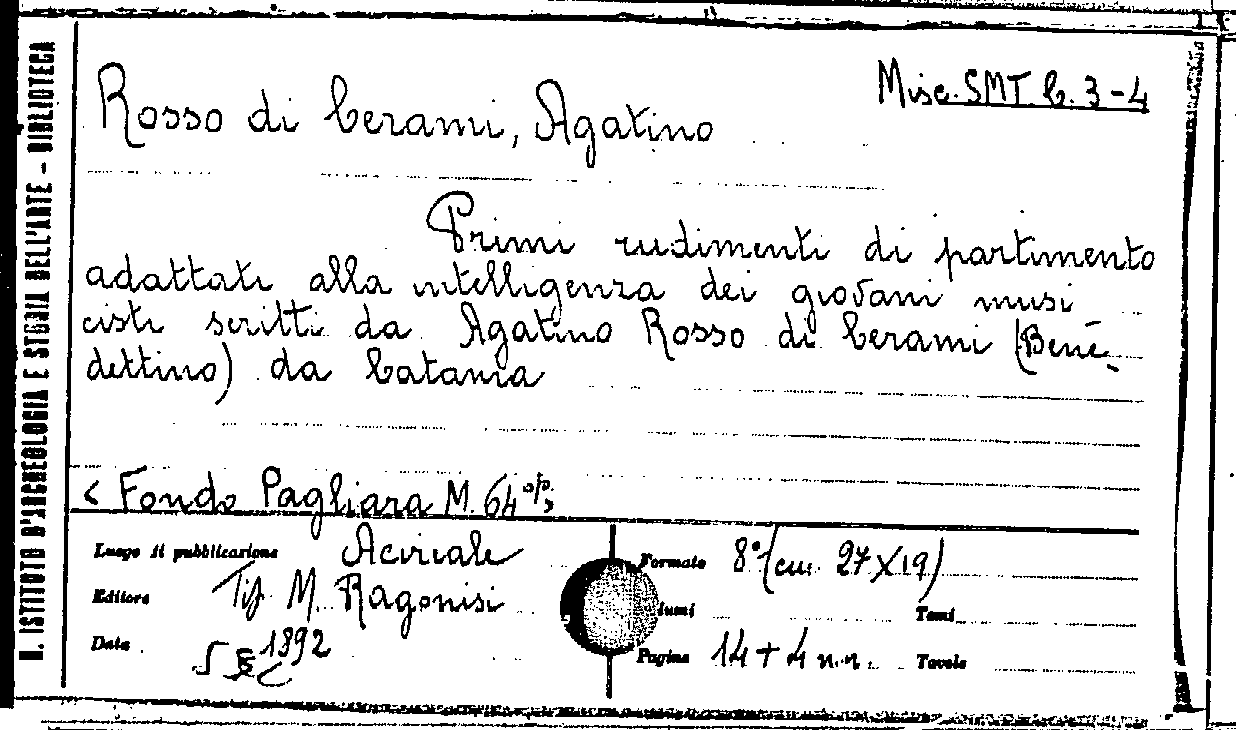 N. ISTITUTO D'ARCHEOLOGIA E STORIA DELL'ARTE - BIBLIOTECA
Misc. SMT. C. 3-4
Rosso di Cerami, Agatino
Primi rudimenti di partimento
adattati alla intelligenza dei giovani musi
cisti scritti da Agatino Rosso di Cerami (Bene-
dettino) da Catania
< Fondo Pagliara M. 64
Luogo di pubblicazione Acireale
Editore Tip. M. Ragonisi
Data 1892
Formato 8° (cm. 27X19)
lumi Tomi
Pagine 14 + 4 n.n. Tavole